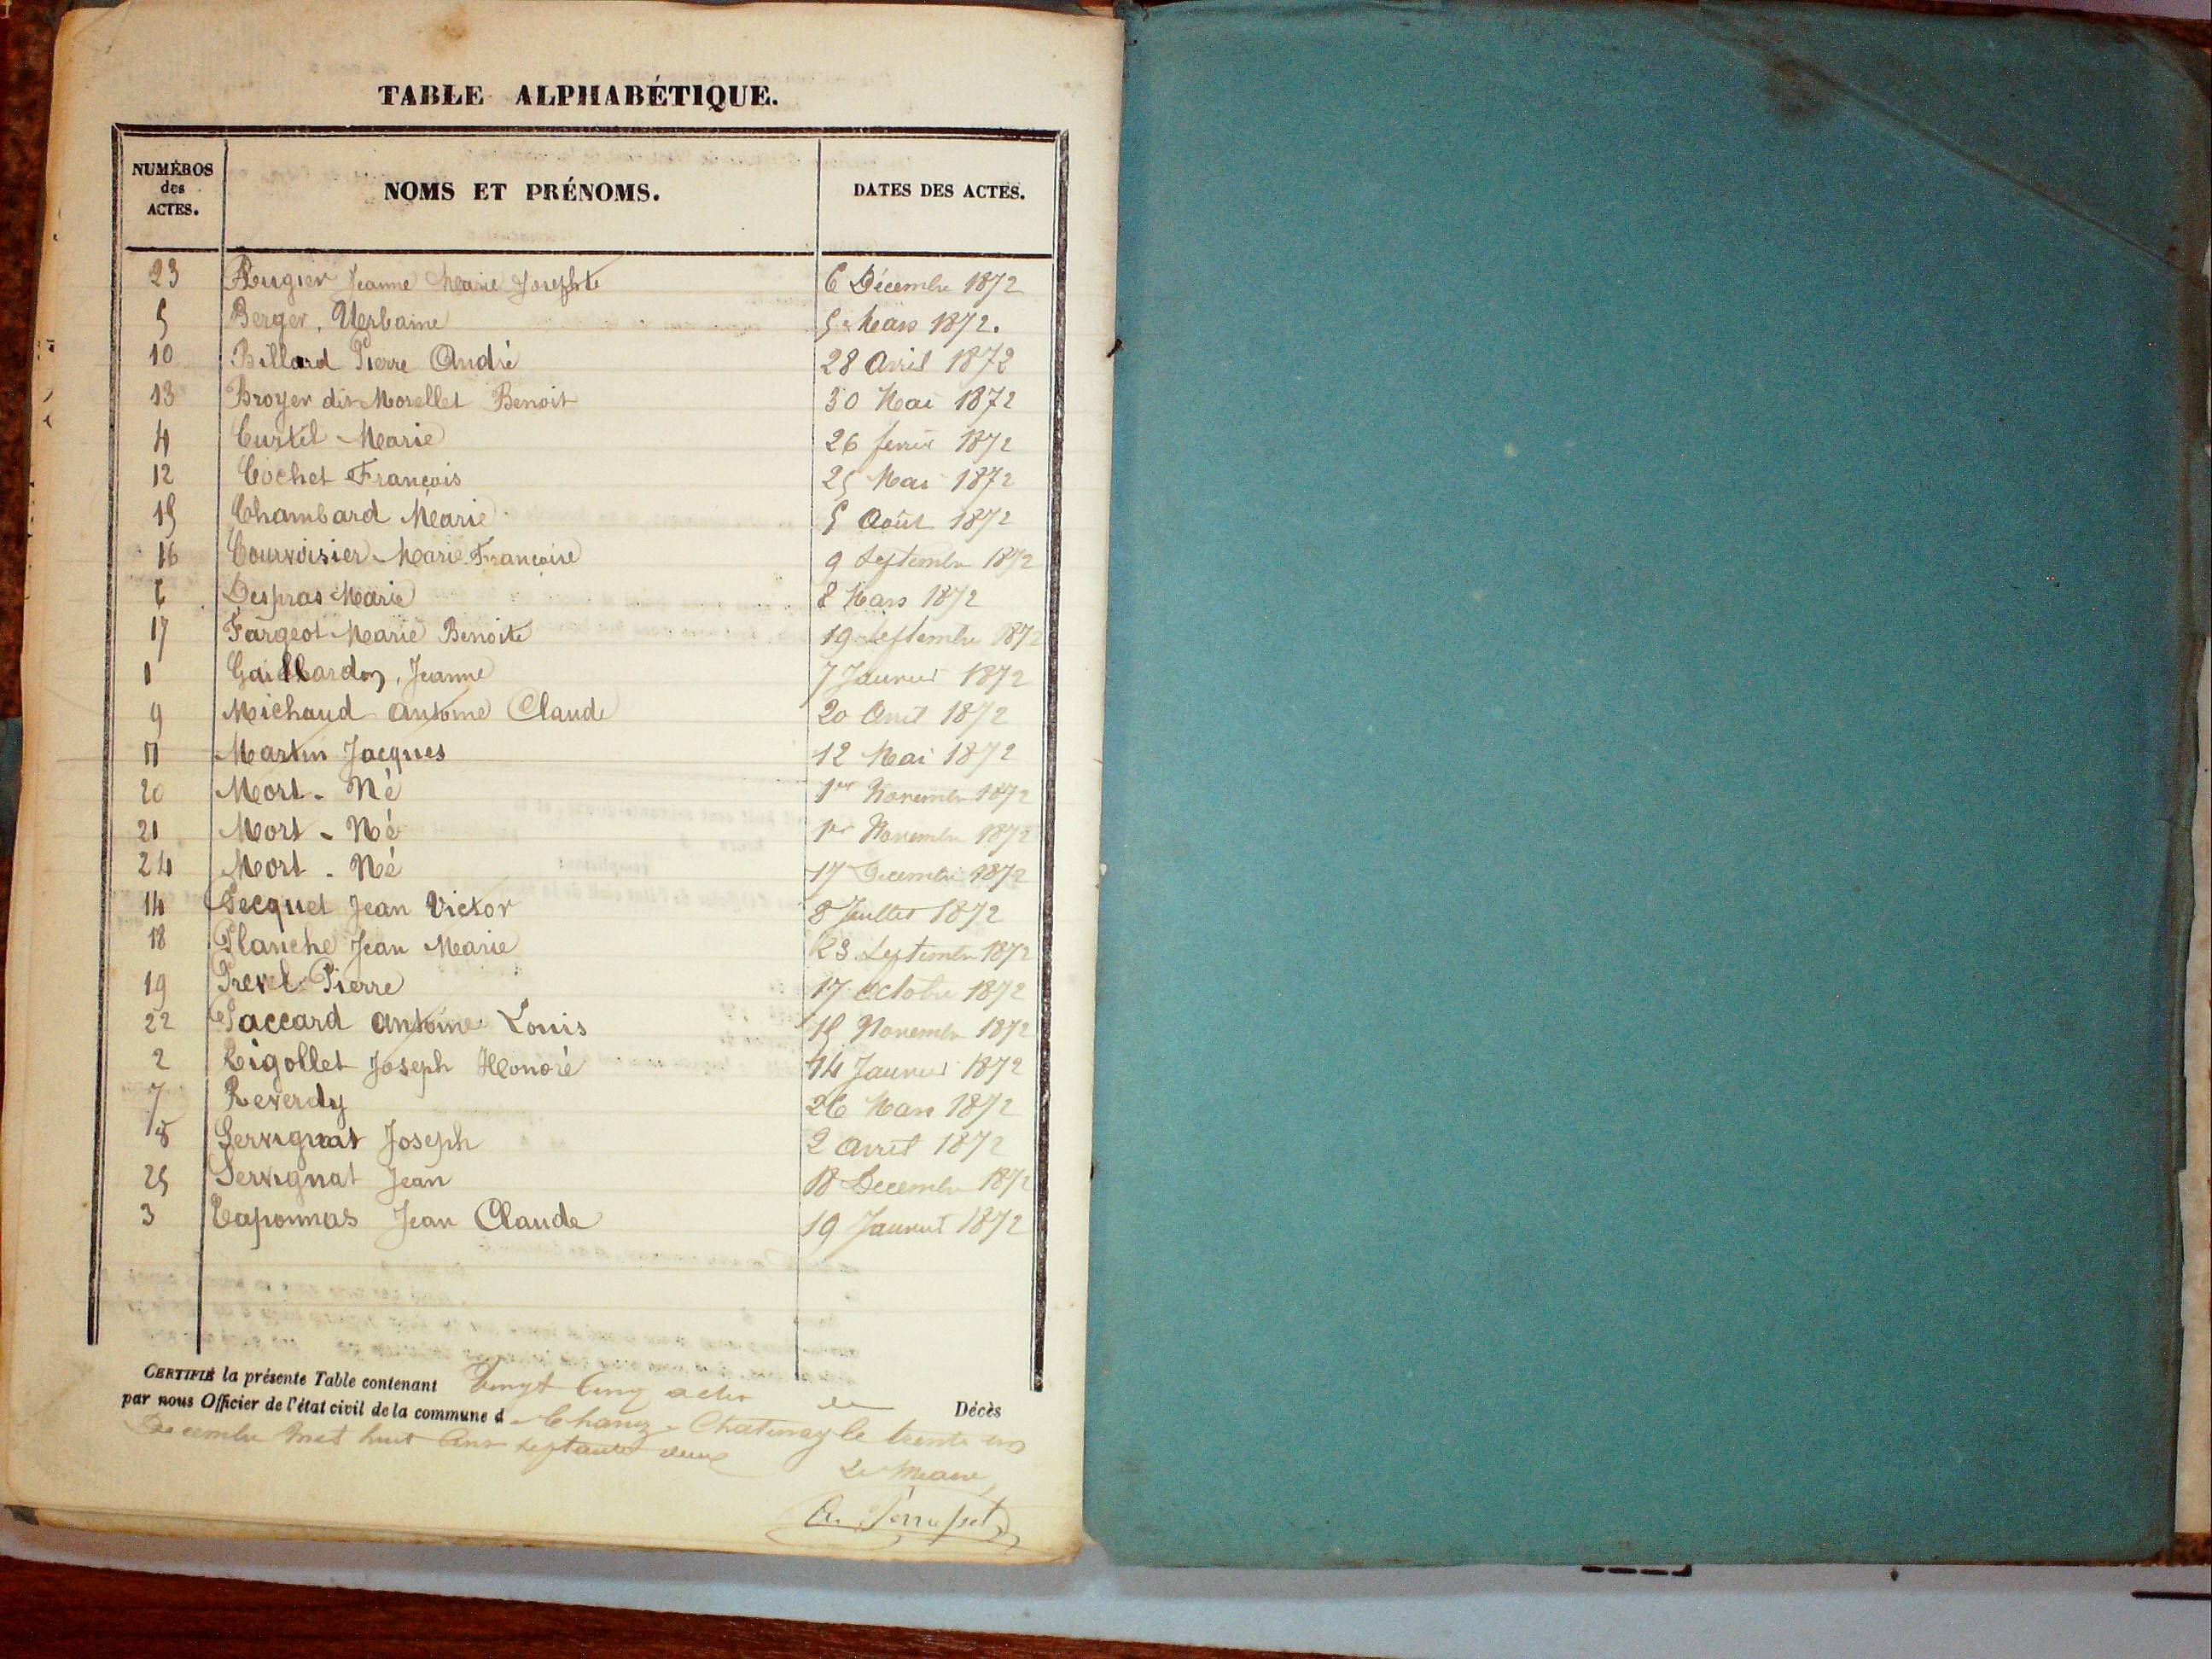 TABLE ALPHABÉTIQUE.
NUMÉROS des ACTES. NOMS ET PRÉNOMS. DATES DES ACTES.
23 Jeanne Marie Josephte 6 Décembre 1872
5 Berger, Urbaine 5 Mars 1872.
10 Billard Pierre André 28 Avril 1872
13 Broyer dit Morellet Benoit 30 Mai 1872
4 Curtil Marie 26 1872
12 Cochet François 25 Mai 1872
15 Chambard Marie 5 Août 1872
16 Courvoisier Marie Françoise 9 Septembre 1872
6 Despras Marie 8 Mars 1872
17 Fargeot Marie Benoite 19 Septembre 1872
1 Gaillardon, Jeanne 7 Janvier 1872
9 Michaud Antoine Claude 20 Avril 1872
11 Martin Jacques 12 Mai 1872
20 Mort-Né 1er Novembre 1872
21 Mort-Né 1er Novembre 1872
24 Mort-Né 17 Décembre 1872
14 Pecquet Jean Victor 8 Juillet 1872
18 Planche Jean Marie 23 Septembre 1872
19 Prevel Pierre 17 Octobre 1872
22 Paccard Antoine Louis 15 Novembre 1872
2 Rigollet Joseph Honoré 14 Janvier 1872
7 Reverdy 26 Mars 1872
8 Servignat Joseph 2 Avril 1872
25 Servignat Jean 18 Décembre 1872
3 Taponnas Jean Claude 19 Janvier 1872
CERTIFIÉ la présente Table contenant Vingt Cinq actes de Décès
par nous Officier de l'état civil de la commune d Chanoz-Chatenay le trente un
Decembre mil huit Cent septante deux
Le Maire,